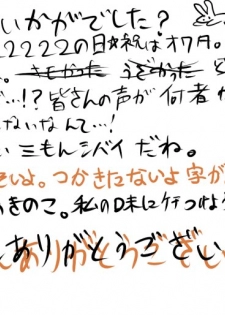 いかがでした？
22222の日☆祝はオワ月。
。きもかった うざかった
ド…!? 皆さんの声が 何者か
ないなんて…!
い 三もんシバイ だね。
そいよ。つかきたないよ 字が
きのこ。私の口味にケチつけよう
ありがとうござい